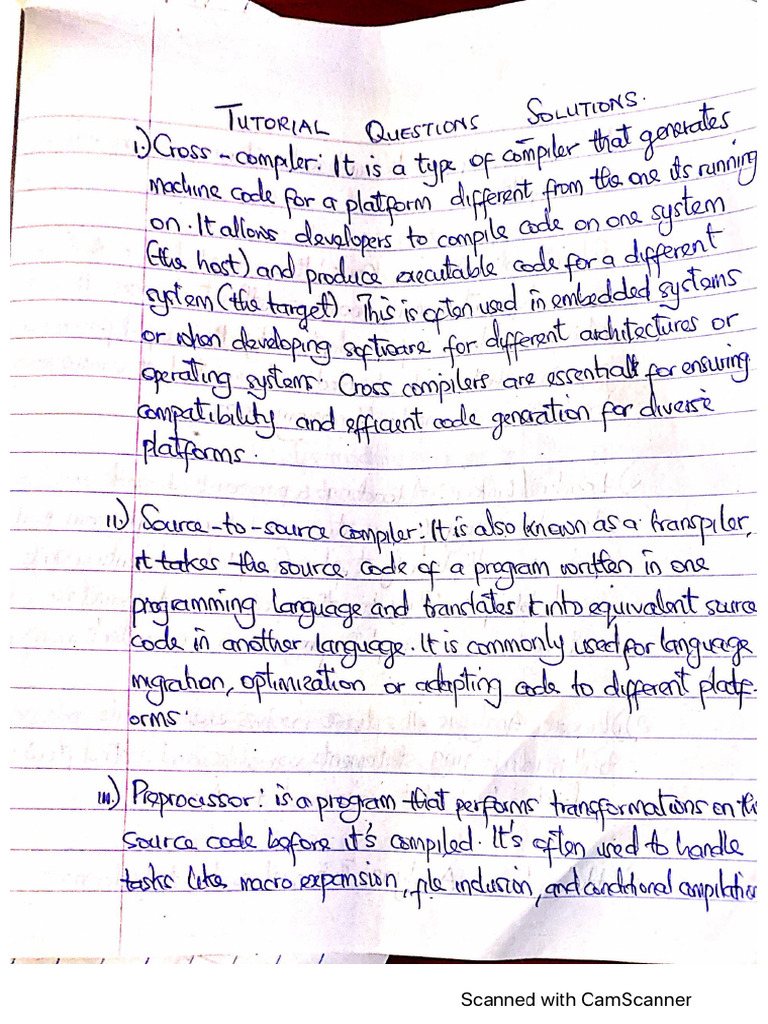 TUTORIAL QUESTIONS SOLUTIONS.
i.) Cross-compiler: It is a type of compiler that generates
machine code for a platform different from the one its running
on. It allows developers to compile code on one system
(the host) and produce executable code for a different
system (the target). This is often used in embedded systems
or when developing software for different architectures or
operating systems. Cross compilers are essential for ensuring
compatibility and efficient code generation for diverse
platforms.
ii.) Source-to-source compiler: It is also known as a transpiler,
it takes the source code of a program written in one
programming language and translates it into equivalent source
code in another language. It is commonly used for language
migration, optimization or adapting code to different platf-
orms.
iii.) Preprocessor: is a program that performs transformations on the
source code before it's compiled. It's often used to handle
tasks like macro expansion, file inclusion, and conditional compilation
Scanned with CamScanner